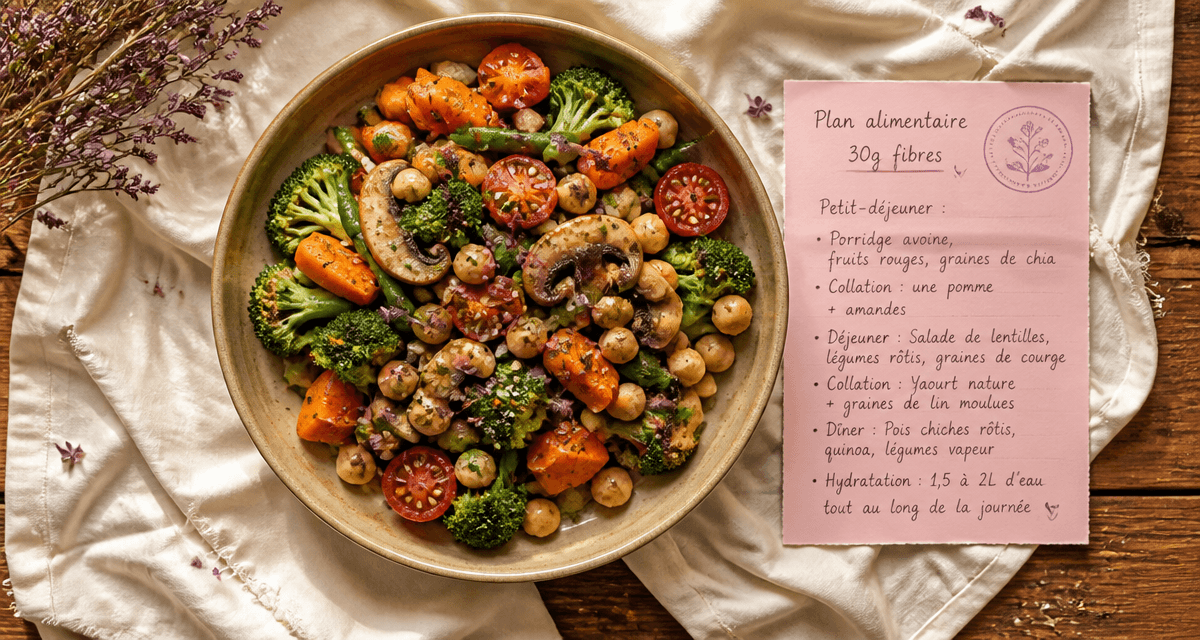 Plan alimentaire
30g fibres
Petit-déjeuner :
• Porridge avoine,
fruits rouges, graines de chia
• Collation : une pomme
+ amandes
• Déjeuner : Salade de lentilles,
légumes rôtis, graines de courge
• Collation : Yaourt nature
+ graines de lin moulues
• Dîner : Pois chiches rôtis,
quinoa, légumes vapeur
• Hydratation : 1,5 à 2L d'eau
tout au long de la journée